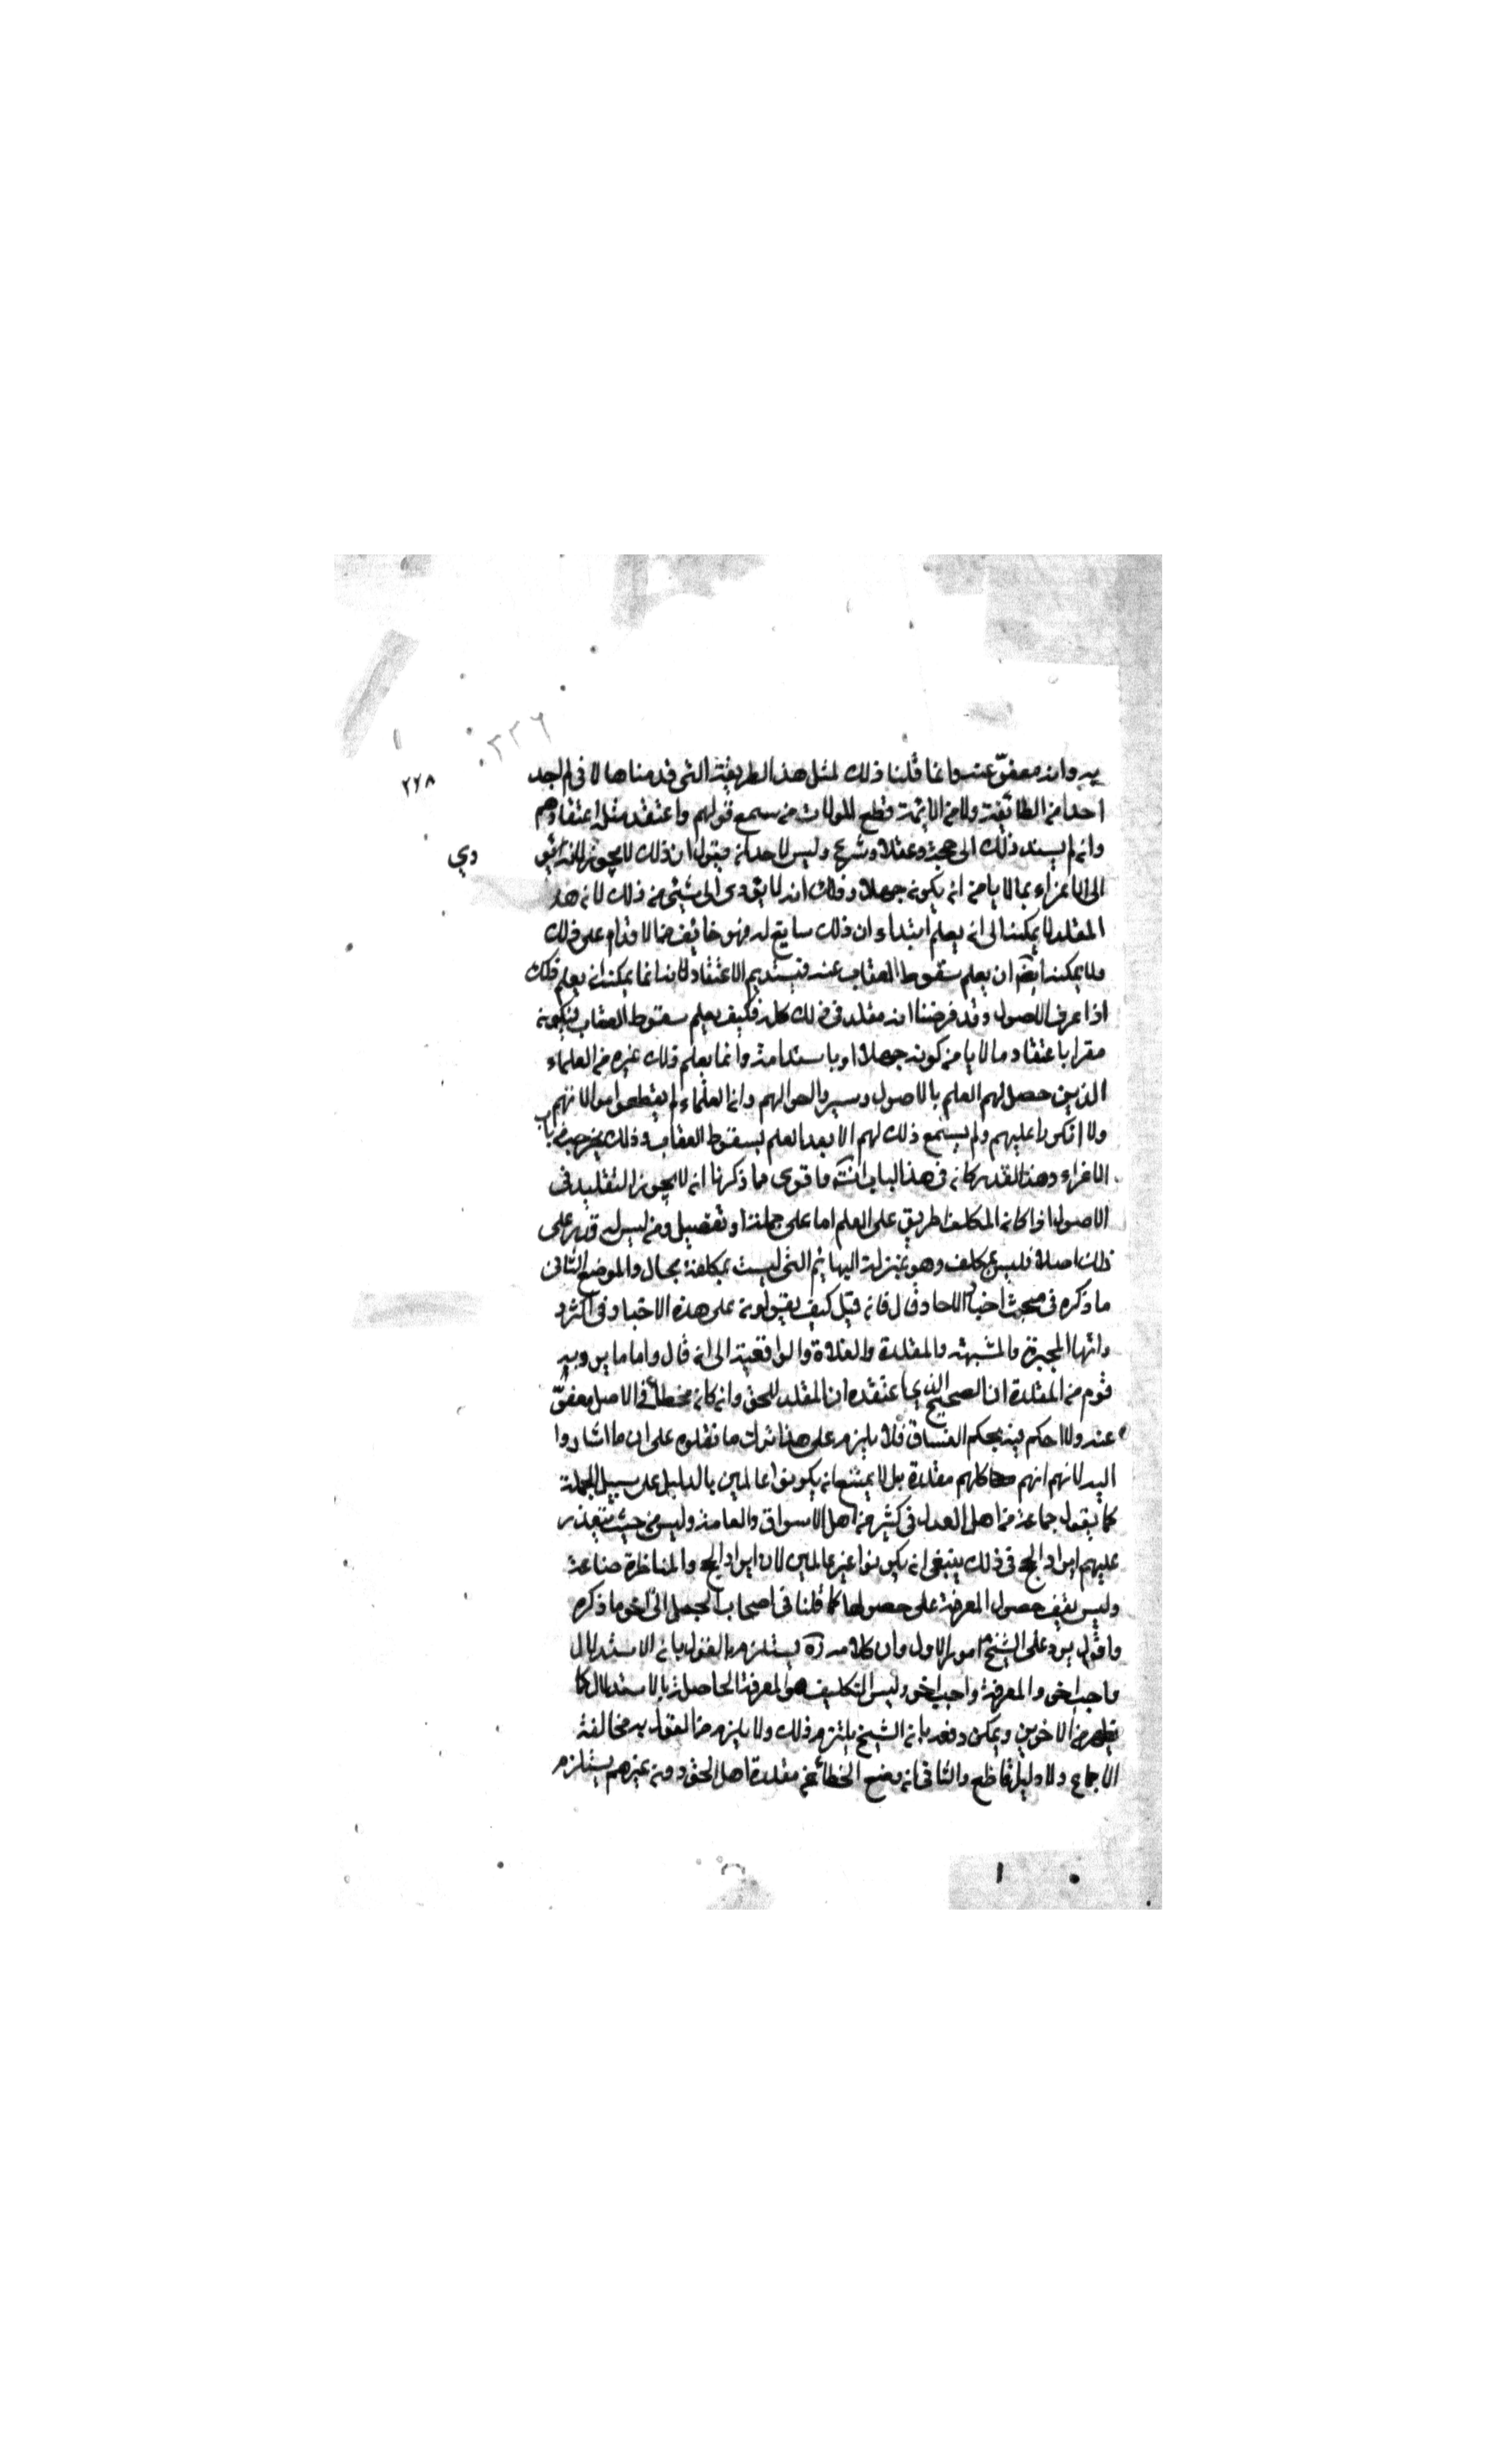 ٢٢٦
٢٢٨
به وانه معفوّ عنه وانما قلنا ذلك لمثل هذه الطريقة التى قدمناها لانى لم اجد
احدا من الطائفة ولا من الائمة قطع الموالات من سمع قولهم واعتقد مثل اعتقادهم
وان لم يسند ذلك الى حجة وعقل او شرع وليس لاحد ان يقول ان ذلك لا يجوز لانه يؤ
دي
الى الاغراء بما لا يامن ان يكون جهلا وذلك انه لا يؤدى الى شئ من ذلك لان هذا
المقلد لا يمكنه الى ان يعلم ابتداء ان ذلك سايغ له فهو خائف من الاقدام على ذلك
ولا يمكنه ايضا ان يعلم سقوط العقاب عنه فيستديم الاعتقاد لانه انما يمكنه ان يعلم ذلك
اذا عرف الاصول وقد فرضنا انه مقلد فى ذلك كله فكيف يعلم سقوط العقاب فيكون
مقرا باعتقاد ما لا يامن كونه جهلا او باستدامته وانما يعلم ذلك غيره من العلماء
الذين حصل لهم العلم بالاصول وسبروا احوالهم وان العلماء لم يقطعوا موالاتهم
ولا انكروا عليهم ولم يسمع ذلك لهم الا بعد العلم بسقوط العقاب وذلك يخرجه من باب
الاغراء وهذا القدر كان فى هذا الباب انتهى واقوى ما ذكرنا انه لا يجوز التقليد فى
الاصول اذا كان للمكلف طريق على العلم اما على جملة او تفصيل ومن ليس له قدرة على
ذلك اصلا فليس بمكلف وهو بمنزلة البهائم التى ليست بمكلفة بحال والموضع الثانى
ما ذكره فى مبحث اخبار الاحاد قال فان قيل كيف يقولون على هذه الاخبار واكثر ر
واتها المجبرة والمشبهة والمقلدة والغلاة والواقفية الى ان قال واما ما يرويه
قوم من المقلدة ان الصحيح الذى اعتقده ان المقلد للحق وان كان مخطئا فى الاصل معفوّ
عنه ولا احكم فيه بحكم الفساق فلا يلزم على هذا ترك ما نقلوه على ان ما اشاروا
اليه لانهم انهم كلهم مقلدة بل لا يمتنع ان يكونوا عالمين بالدليل على سبيل الجملة
كما يقول جماعة من اهل العدل فى كثير من اهل الاسواق والعامة وليس من حيث يتعذر
عليهم ايراد الحجج فى ذلك ينبغى ان يكونوا غير عالمين لان ايراد الحجج والمناظرة صناعة
وليس يقف حصول المعرفة على حصولها كما قلنا فى اصحاب الجمل الى اخر ما ذكره
واقول يرد على الشيخ امور الاول وان كلامه ره يستلزم القول بان الاستدلال
واجب اخر والمعرفة واجب اخر وليس التكليف هو المعرفة الحاصلة بالاستدلال كما
يظهر من الاخرين ويمكن دفعه بان الشيخ يلتزم ذلك ولا يلزم من القول به مخالفة
الاجماع ولا دليل قاطع والثانى ان وضع الخطأ عن مقلدة اهل الحق دون غيرهم يستلزم